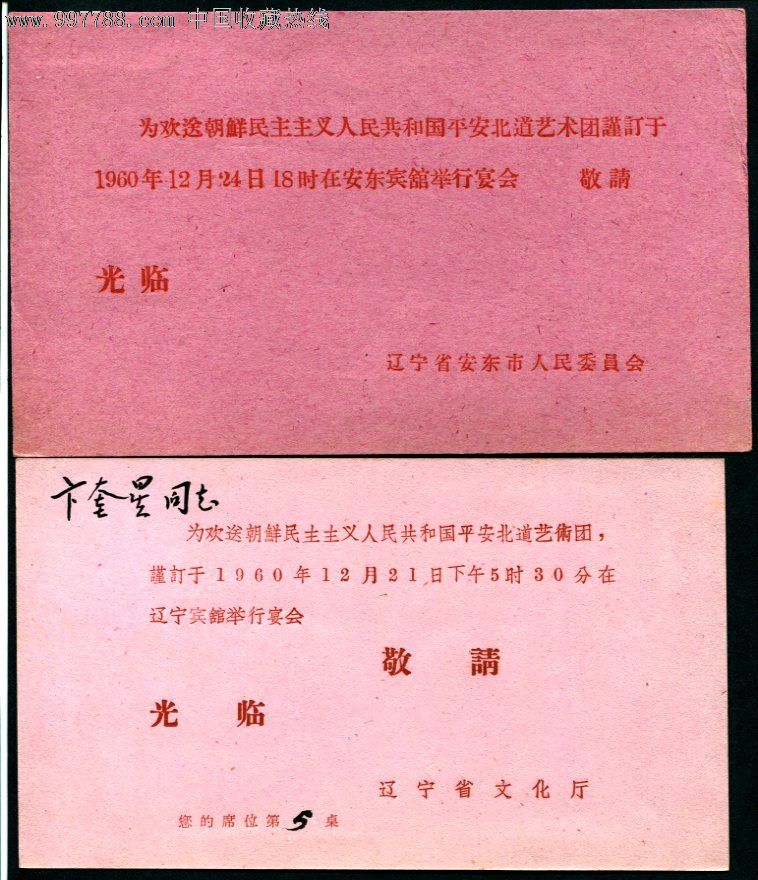 www.997788.com 中国收藏热线
为欢送朝鮮民主主义人民共和国平安北道艺术团謹訂于
1960年12月24日18时在安东宾舘举行宴会 敬請
光临
辽宁省安东市人民委員会
卞奎星同志
为欢送朝鮮民主主义人民共和国平安北道艺術团，
謹訂于1960年12月21日下午5时30分在
辽宁宾舘举行宴会
敬請
光临
辽宁省文化厅
您的席位第5桌